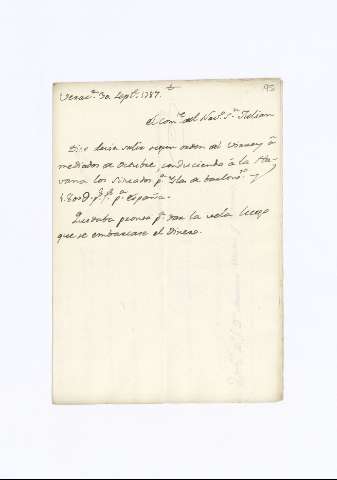 Verac.ᶻ 30 Sept.ᵉ 1787.
95
El Com.ᵗᵉ del Nav.º S.ⁿ Julian
Dice devia salir segun orden del Virrey á
mediados de Octubre, conduciendo á la Ha-
vana los Situados p.ᵃ Islas de barlov.ᵗᵒ y
p.ˢ f.ˢ p.ᵃ España.
Quedaba pronto p.ᵃ dar la vela luego
que se embarcase el Dinero.